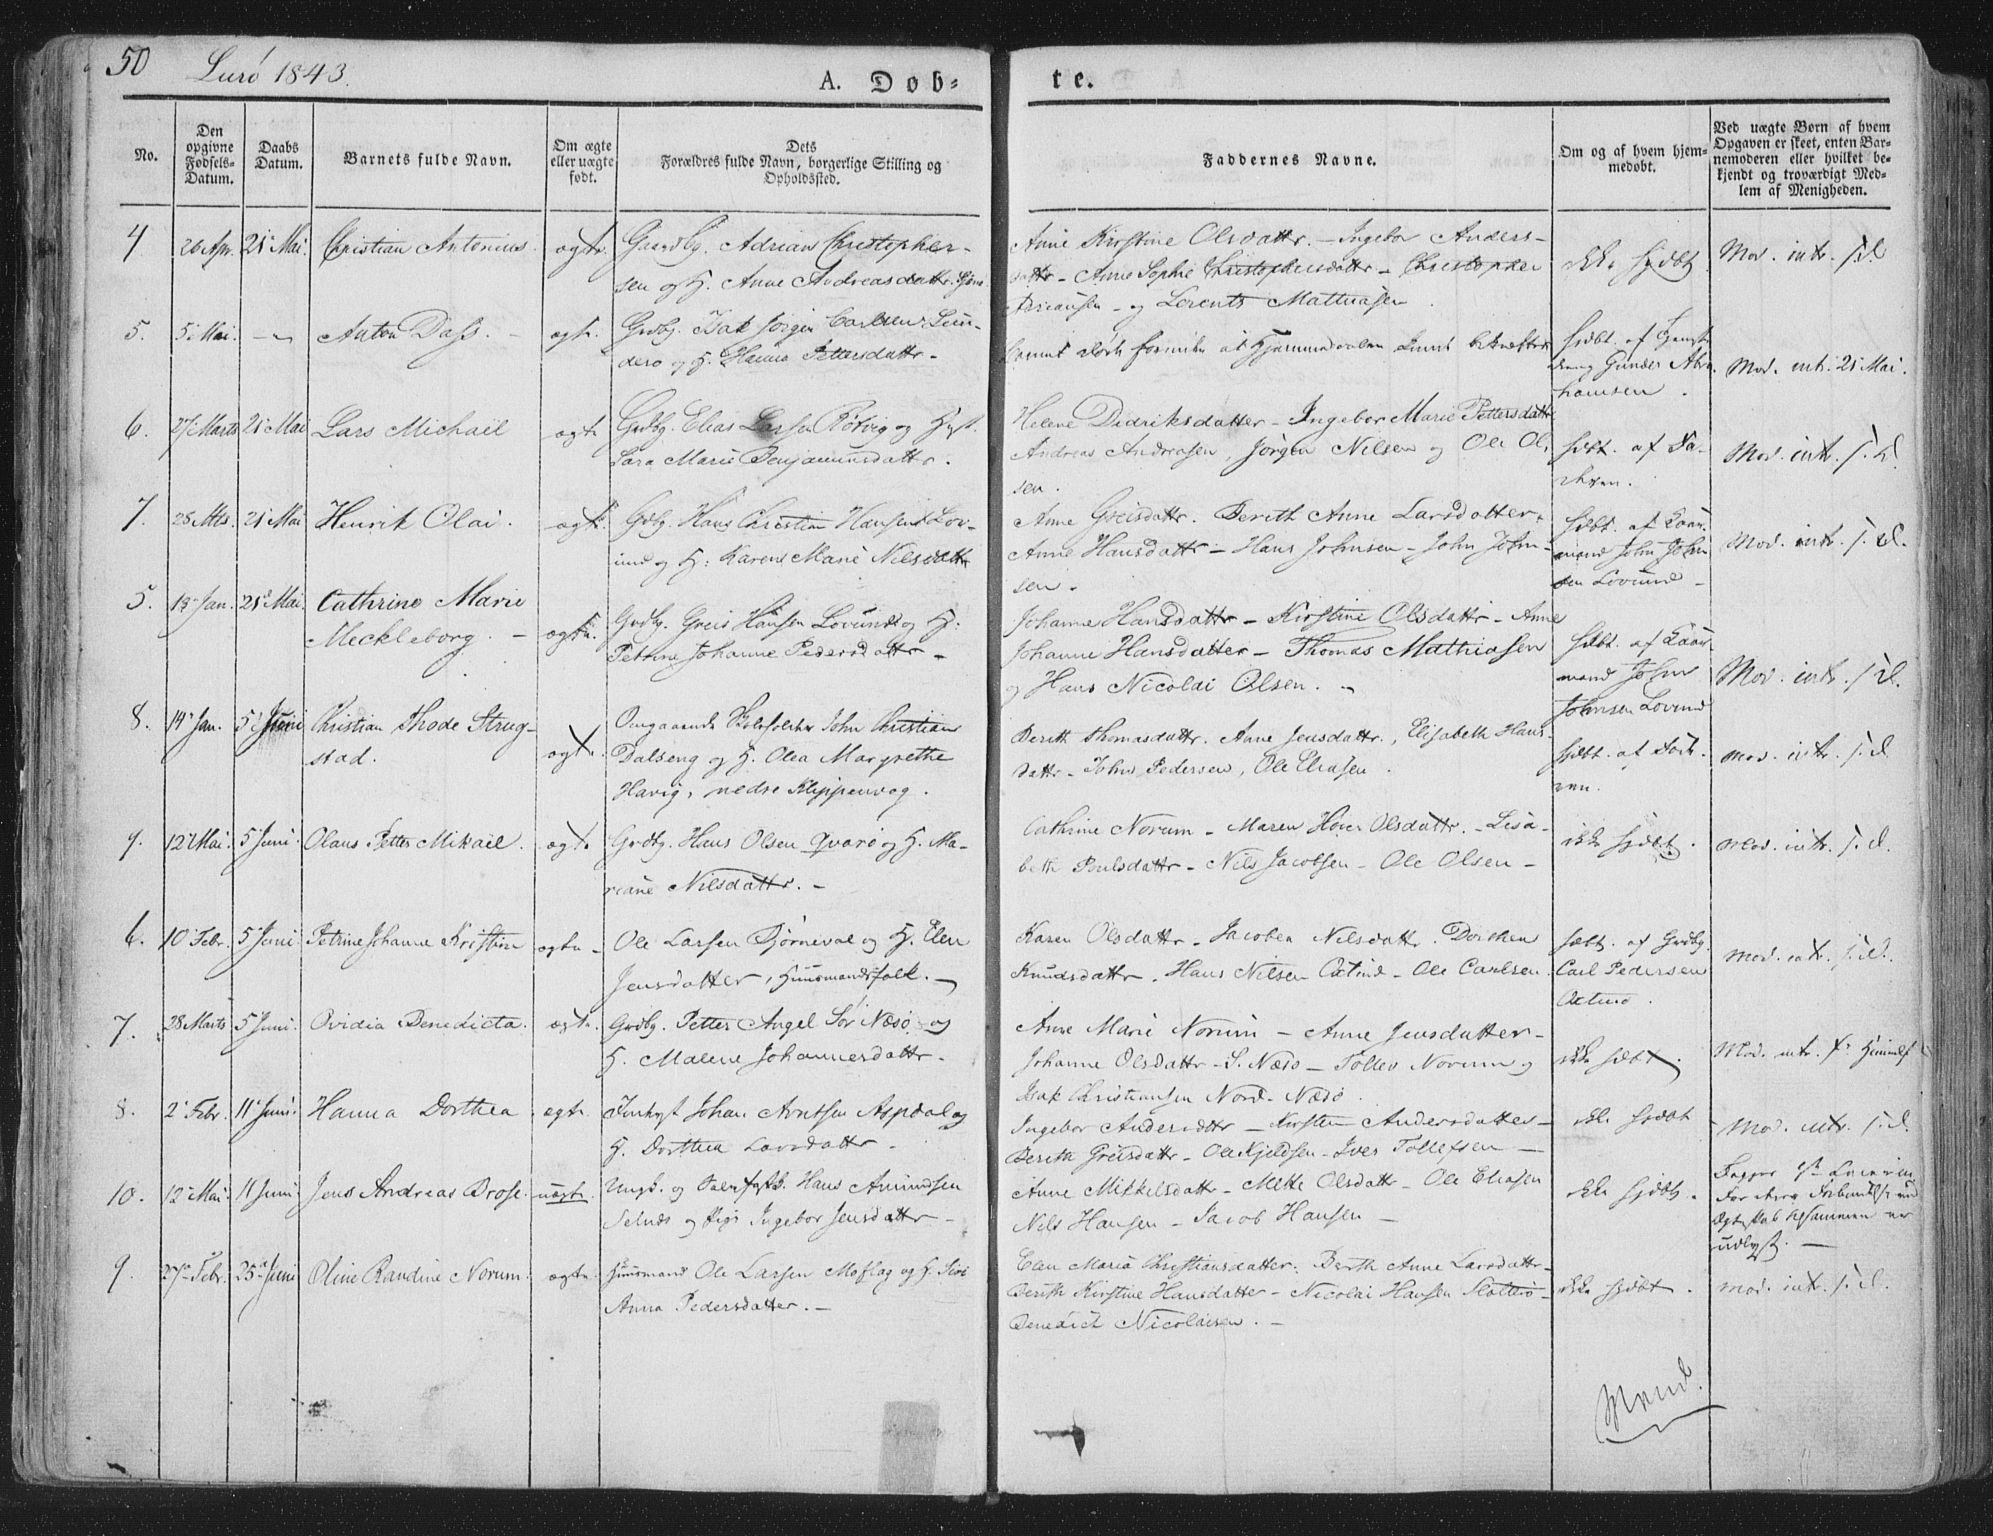 50
Lurö 1843.
A. Döb=
te.
No.
Den opgivne Fødsels-Datum.
Daabs Datum.
Barnets fulde Navn.
Om ægte eller uægte født.
Dets Forældres fulde Navn, borgerlige Stilling og Opholdssted.
Faddernes Navne.
Om og af hvem hjemmedøbt.
Ved uægte Børn af hvem Opgaven er skeet, enten Barnemoderen eller hvilket bekjendt og troværdigt Medlem af Menigheden.
4 26 Apr. 21 Mai. Christian Antonius. ægte. Gaardbg. Adrian Christopher-
sen og H. Anne Andreasdattr.
Anne Kirstine Olsdattr. - Ingebor Anders-
dattr - Anne Sophie Christophersdattr - Christopher
og Lorents Mathiasen
ikke hjdbt
Mod. intr. s. d.
5. 5 Mai. Anton Dass. ægte. Grdbg. Isak Jörgen Carlsen
og H. Hanna Pettersdattr -
hjdbt. af
Gunder Abra-
hamsen.
Mod. intr. 21 Mai.
6. 27 Marts 21 Mai Lars Michaël ægte Grdbg. Elias Larsen Rötvig og Hust.
Sara Marie Benjaminsdattr.
Helene Didriksdatter - Ingebor Marie Pettersdattr
Andreas Andreasen, Jörgen Nilsen og Ole Ol-
sen.
hjdbt. af Fa-
deren.
Mod. intr. s. d.
7. 28 Mts. 21 Mai Henrik Olai. ægte. Grdbg. Hans Christian Hansen Lov-
und og H. Karen Marie Nilsdattr
Anne Greisdattr. Berith Anne Larsdatter,
Anne Hansdattr - Hans Johnsen - John John-
sen.
hjdbt. af Laar-
mand John John
sen Lovund -
Mod. intr. s. d.
5. 13 Jan. 21 Mai. Cathrine Marie
Meckleborg. - ægte. Grdbg. Greis Hansen Lovund og H.
Petrine Johanne Pedersdattr -
Johanne Hansdattr - Kirstine Olsdattr - Anne
Johanne Hansdatter - Thomas Mathiasen
og Hans Nicolai Olsen.
hjdbt. af Laar-
mand John
Johnsen Lovund
Mod. intr. s. d.
8. 14 Jan. 5 Juni Christian Thode Strug-
stad. ægte. Omgaaende Skoleholder John Christian
Dalseng og H. Olea Margrethe
Havig, nedre Klippenvog.
Berith Thomasdattr. Anne Jensdattr., Elisabeth Hans-
dattr - John Pedersen, Ole Eliasen.
hjdbt. af
Mod. intr. s. d.
9. 12 Mai 5 Juni. Olaus Petter Mikaël. ægte Grdbg. Hans Olsen Qvarö og H. Ma-
riane Nilsdattr. -
Cathrine Norum - Maren Olsdattr. - Lisa-
beth Poulsdattr - Nils Jacobsen - Ole Olsen -
ikke hjdbt.
Mod. intr. s. d.
6. 10 Febr. 5 Juni Petrine Johanne Kristine ægte - Ole Larsen og H. Elen
Jensdatter, Huusmandsfolk. -
Karen Olsdattr - Jacobea Nilsdattr. Dorthea
Knudsdattr. Hans Nilsen - Ole Carlsen.
hjdbt. af Grdbg.
Carl Pedersen
Mod. intr. s. d.
7. 28 Marts 5 Juni. Ovidia Benedicta. ægte. Grdbg. Petter Angel Sör Næsö og
H. Malene Johannesdattr -
Anne Marie Norum - Anne Jensdatter -
Johanne Olsdattr - S. Næsö - Tollev Norum og
Isak Christiansen Nord-Næsö.
ikke hjdbt.
Mod. intr.
8. 2 Febr. 11 Juni. Hanna Dorthea ægte. Johan Arntsen Aspdal og
H. Dorthea Larsdattr -
Ingebor Andersdattr - Kirsten Andersdatter -
Berith Greisdattr - Ole Kjeldsen - Iver Tollefsen -
ikke hjdbt
Mod. intr. s. d.
10. 12 Mai 11 Juni. Jens Andreas Brose. uægte. Ungk. og Hans Amundsen
Selnæs og Pige Ingebor Jensdattr -
Anne Mikkelsdattr - Mette Olsdattr - Ole Eliasen
Nils Hansen - Jacob Hansen -
ikke hjdbt.
udlyst. -
9. 27 Febr. 25 Juni Oline Randine Norum. ægte Huusmand Ole Larsen Moflag og H. Siri
Anna Pedersdatter. -
Elen Maria Christiansdatter. Berth Anne Larsdattr -
Berith Kirstine Hansdatter - Nicolai Hansen Slotterö -
Benedict Nicolaisen. -
ikke hjdbt.
Mod. intr. s. d.